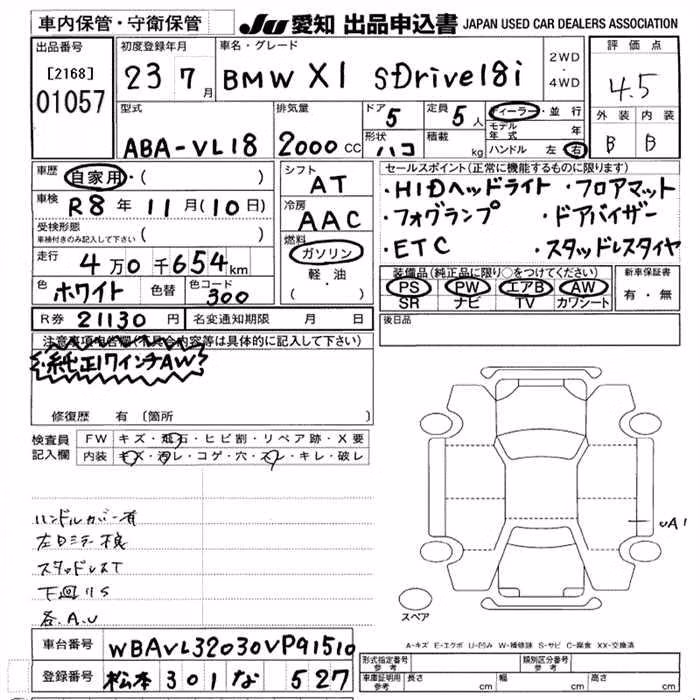 車内保管・守衛保管 JU 愛知 出品申込書 JAPAN USED CAR DEALERS ASSOCIATION
出品番号 初度登録年月 車名・グレード 評価点
[2168] 01057 23 7月 BMW X1 sDrive18i 2WD・4WD 4.5
外装 内装
B B
型式 排気量 ドア 5 定員 5人 ディーラー・並行
モデル年式 年
ABA-VL18 2000cc 形状 ハコ 積載 kg ハンドル 左 右
車歴 自家用・( ) シフト AT セールスポイント(正常に機能するものに限ります)
車検 R8年11月(10日) 冷房 AAC ・HIDヘッドライト ・フロアマット
受検形態 車検付きのみ記入して下さい ( ) ・フォグランプ ・ドアバイザー
走行 4万0千654km 燃料 ガソリン 軽・油 (・) ・ETC ・スタッドレスタイヤ
色 ホワイト 色替 色コード 300
装備品(純正品に限り○をつけてください) 新車保証書
PS PW エアB AW 有・無
SR ナビ TV カワシート
R券 21130円 名変通知期限 月 日 後日品
注意事項申告欄(不具合内容等は具体的に記入して下さい)
・純正17インチAW
修復歴 有 〔箇所
検査員記入欄 FW キズ・飛石・ヒビ割・リペア跡・X要
内装 キズ・汚レ・コゲ・穴・スレ・キレ・破レ
ハンドルカバー有
左Dミラー不良
スタッドレスT
下回りS
各.A.U
UA1
スペア
A-キズ E-エクボ U-凹み W-補修跡 S-サビ C-腐食 XX-交換済
車台番号 WBAVL32030VP91510
登録番号 松本 301 な 527
形式指定番号 参考 類別区分番号 参考
車庫証明用 参考 長さ cm 幅 cm 高さ cm